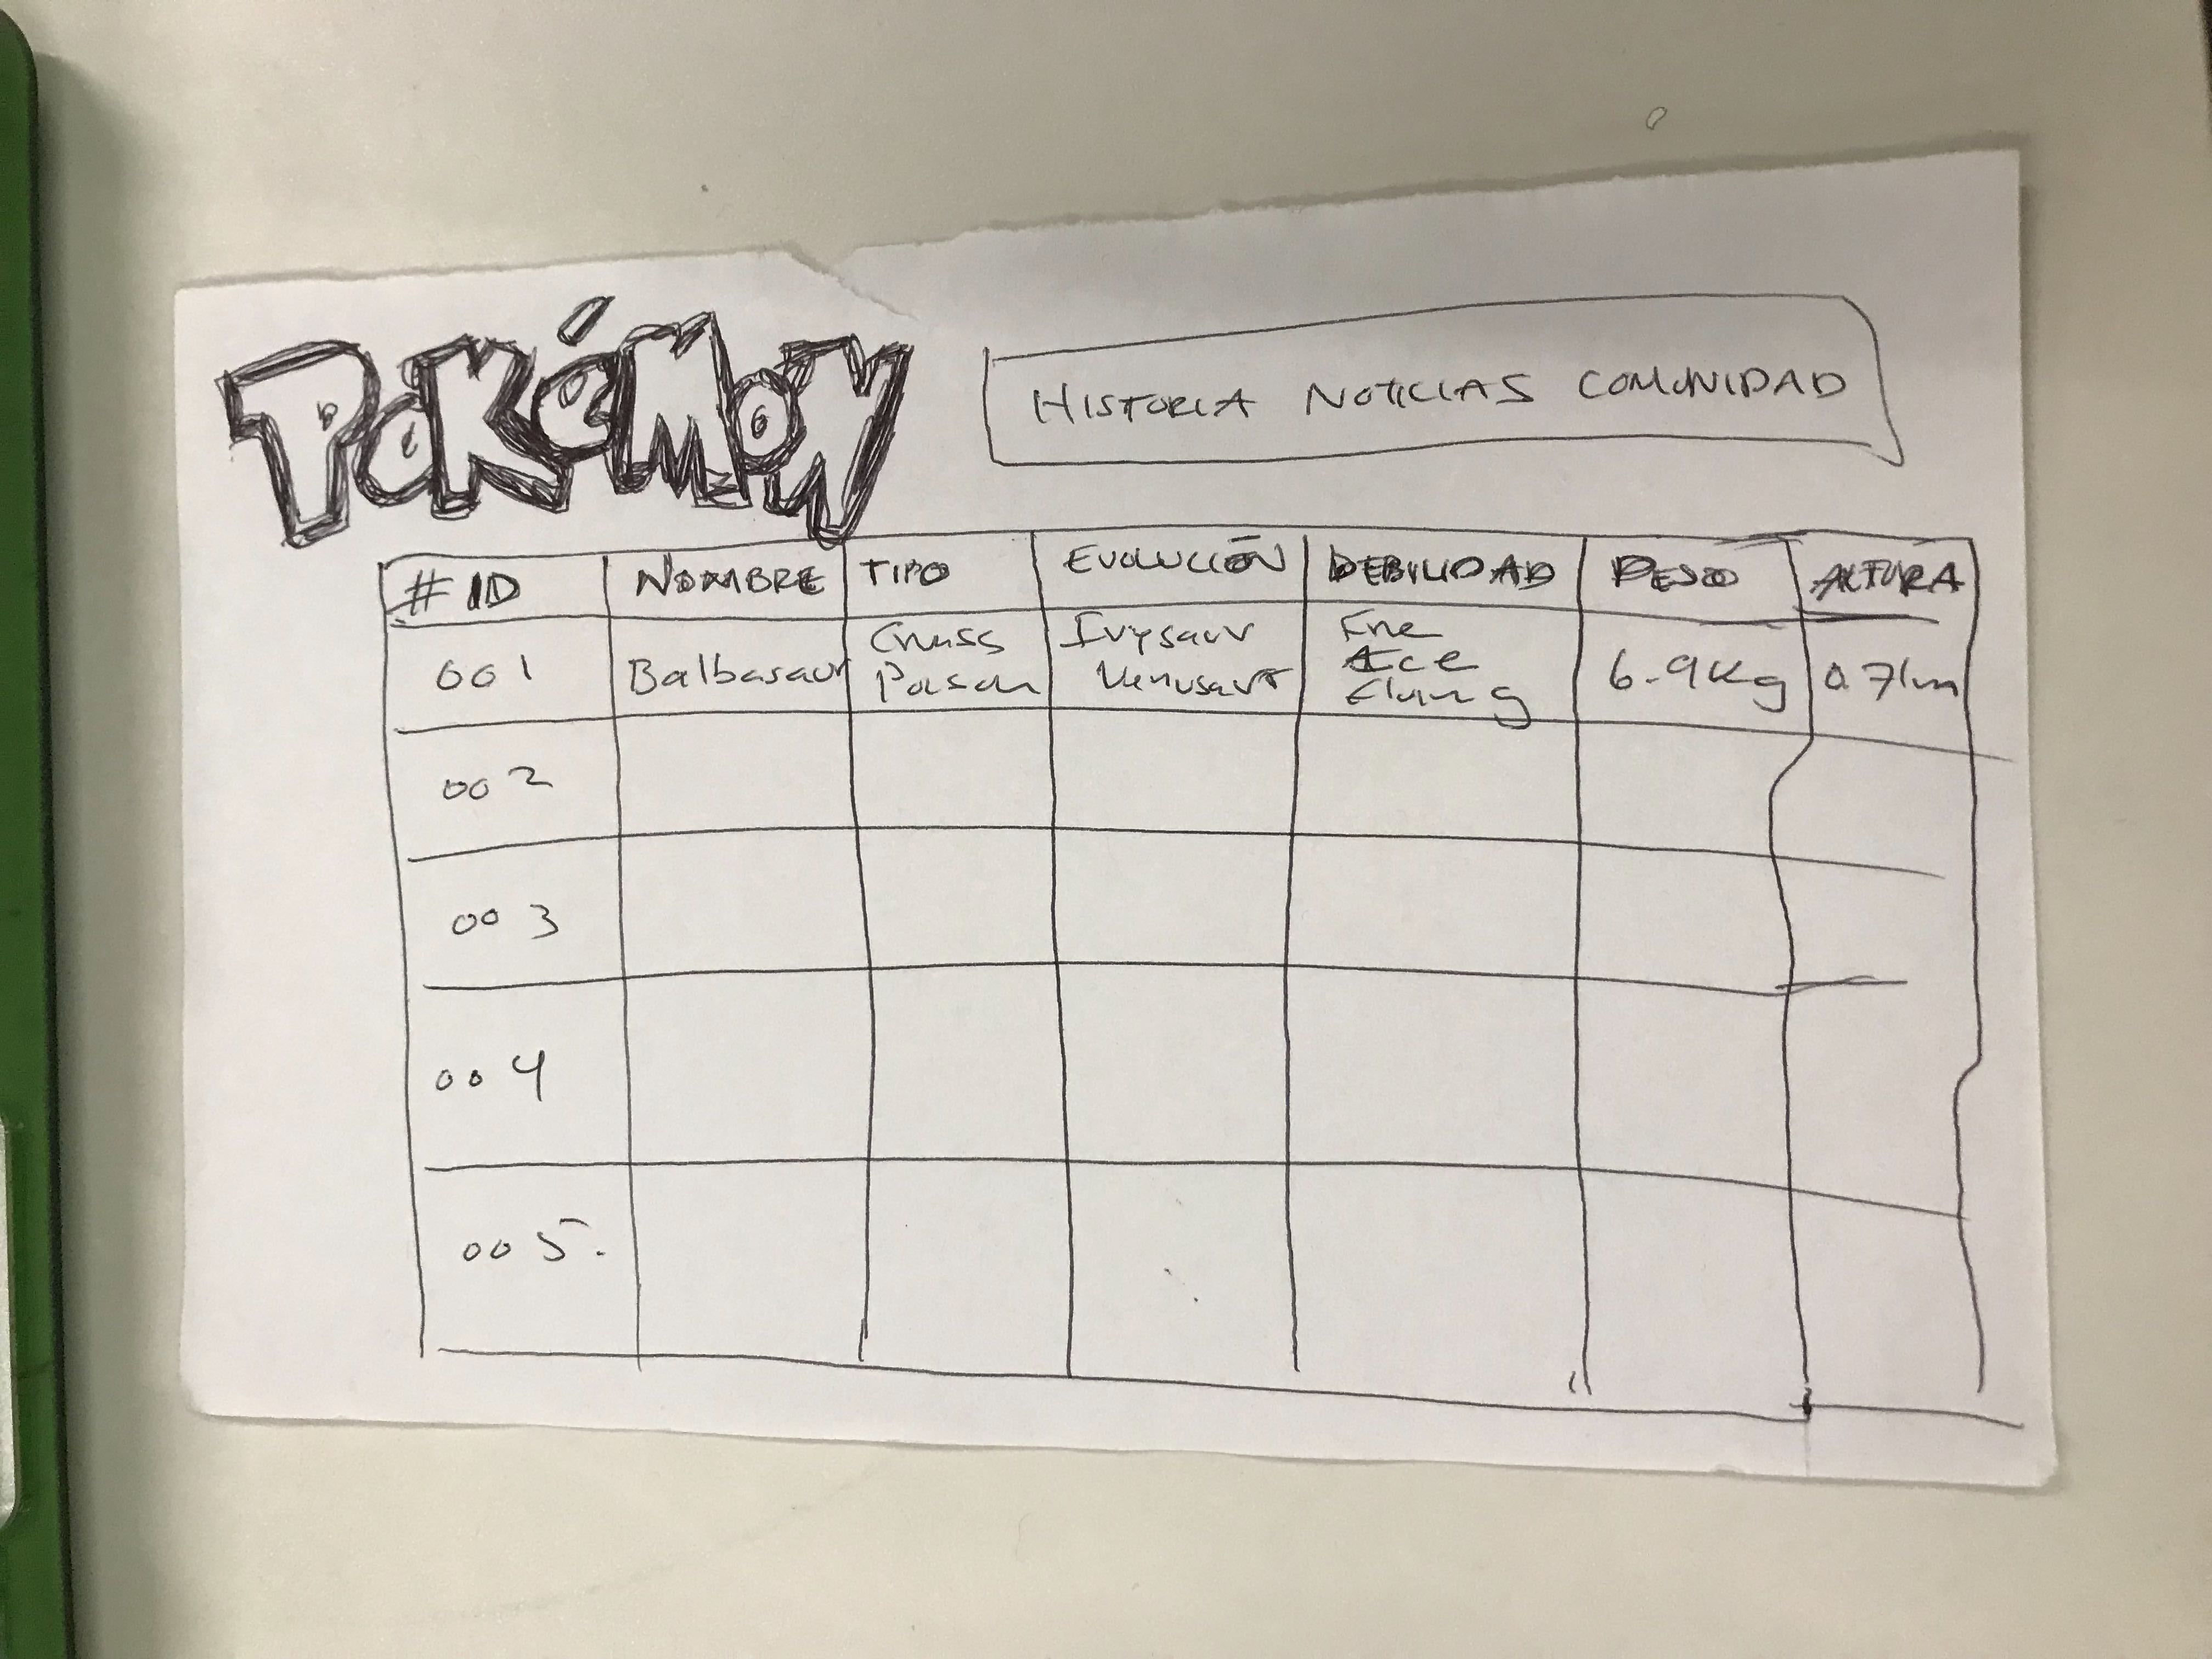 POKéMON
HISTORIA NOTICIAS COMUNIDAD
# ID NOMBRE TIPO EVOLUCIÓN DEBILIDAD PESO ALTURA
001 Balbasaur Grass Poison Ivysaur Venusaur Fire Ice Flying 6.9Kg 0.71m
002
003
004
005.